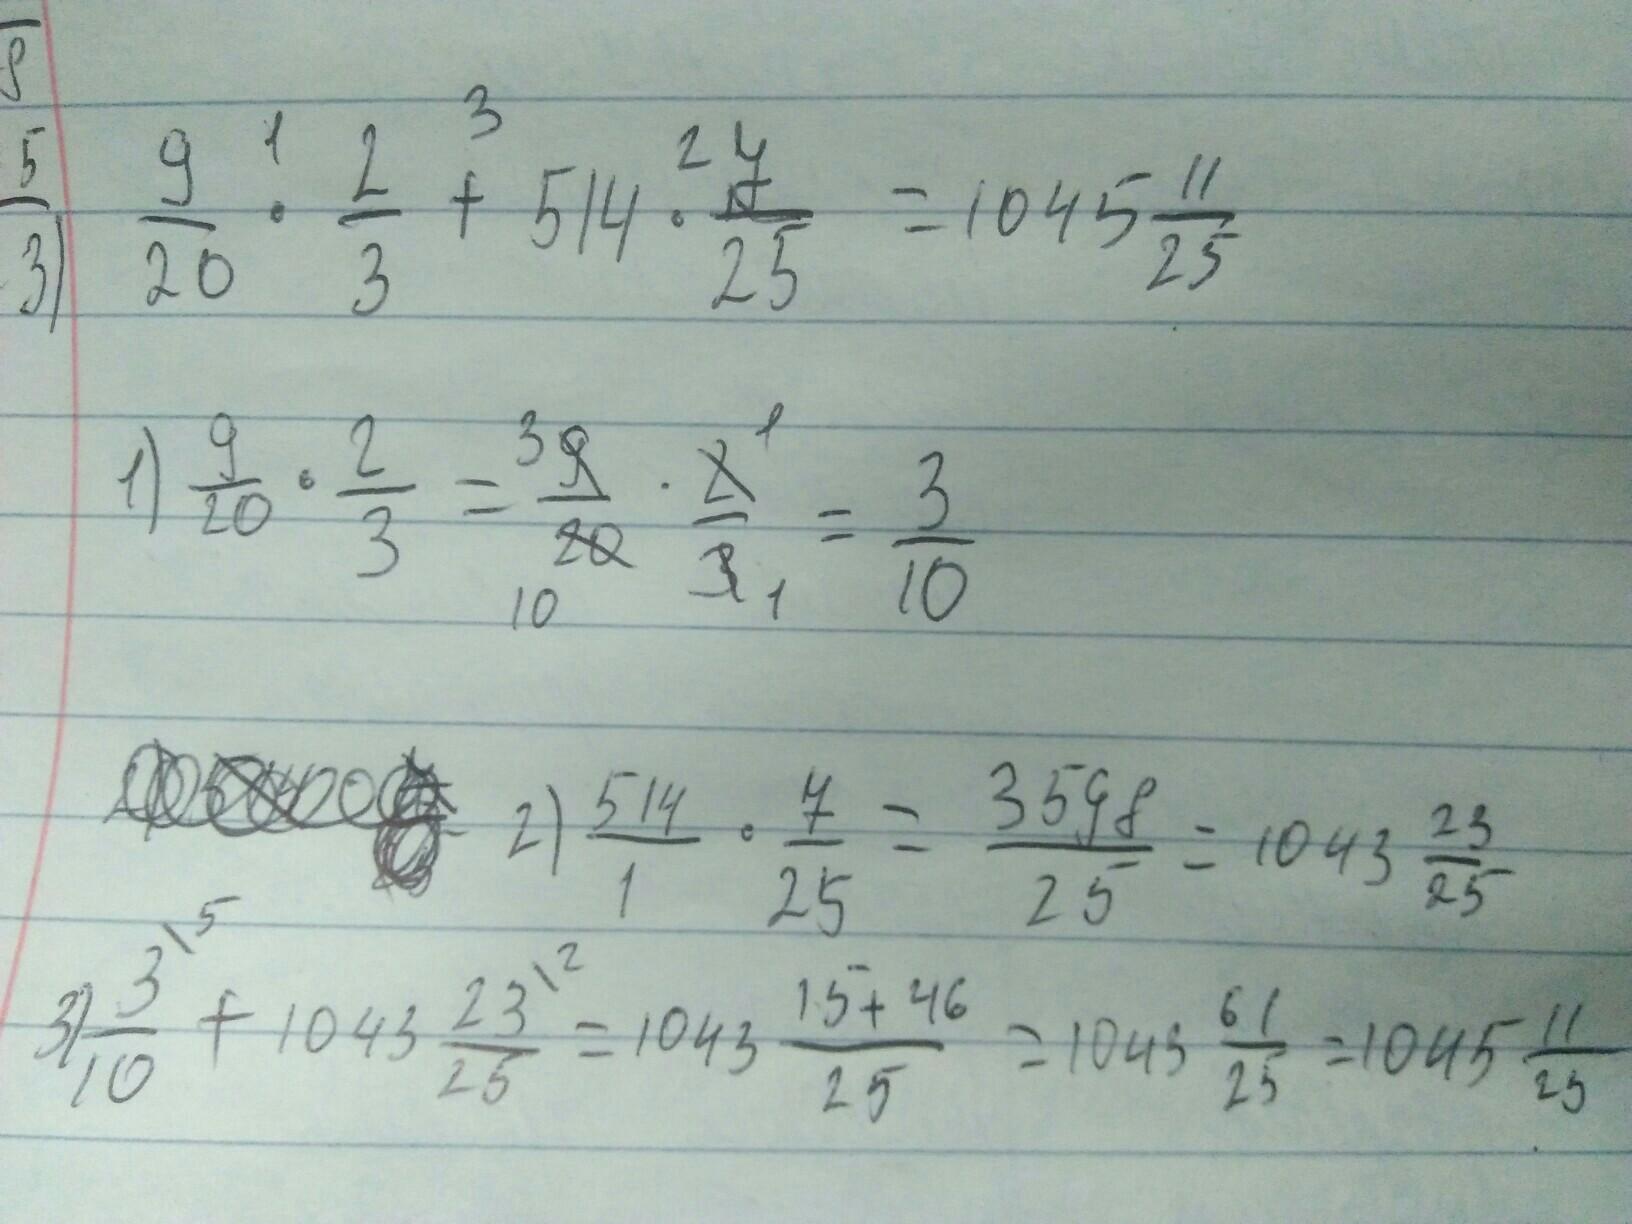 8
5
3) 9/20 ·¹ 2/3 +³ 514 ·² 7/25 = 1045 11/25
1) 9/20 · 2/3 = ³9/20₁₀ · 2¹/3₁ = 3/10
2) 514/1 · 7/25 = 3598/25 = 1043 23/25
3) 3\5/10 + 1043 23\2/25 = 1043 15+46/25 = 1043 61/25 = 1045 11/25